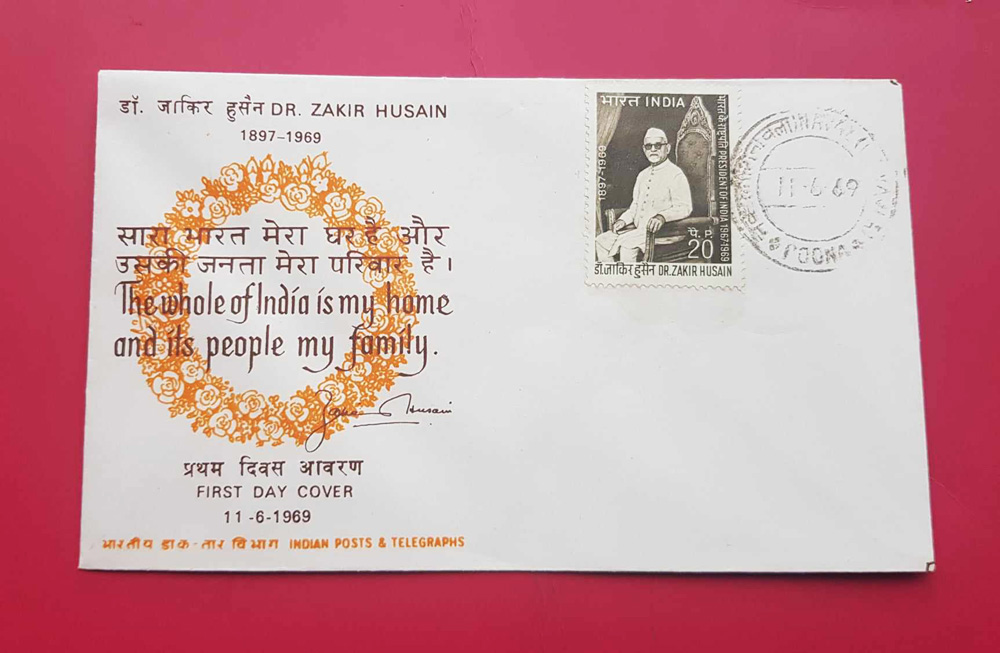 डॉ. जाकिर हुसैन DR. ZAKIR HUSAIN
1897-1969
सारा भारत मेरा घर है और
उसकी जनता मेरा परिवार है।
The whole of India is my home
and its people my family.
Zakir Husain
प्रथम दिवस आवरण
FIRST DAY COVER
11-6-1969
भारतीय डाक-तार विभाग INDIAN POSTS & TELEGRAPHS
भारत INDIA
1897-1969
भारत के राष्ट्रपति PRESIDENT OF INDIA 1967-1969
पै. P.
20
डॉ. जाकिर हुसैन DR. ZAKIR HUSAIN
11-6-69
POONA